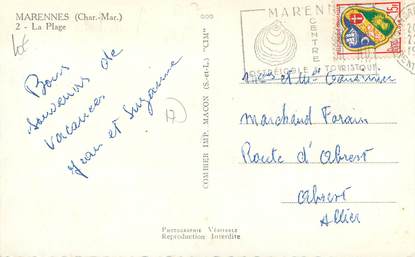 MARENNES (Char.-Mar.)
2 - La Plage
Bons
souvenirs de
vacances
Jean et Suzanne
COMBIER IMP. MACON (S.-et-L.) "CIM"
MARENN
CENTRE
TOURISTIQUE
et
Marchand Forain
Route d'Abrest
Abrest
Allier
Photographie Véritable
Reproduction Interdite